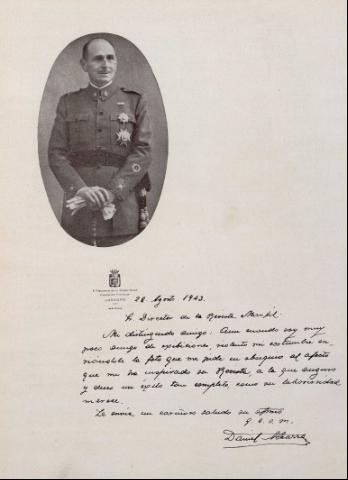 28 Agosto 1943.
Sr. Director de la Revista
Mi distinguido amigo: Aun cuando soy muy
poco amigo de exhibiciones, mi costumbre en-
viándole la foto que me pide en obsequio al afecto
que me ha inspirado su Revista, a la que auguro
y deseo un éxito tan completo, como su laboriosidad
merece.
Le envía un cariñoso saludo su afmo
q. e. s. m.
Daniel